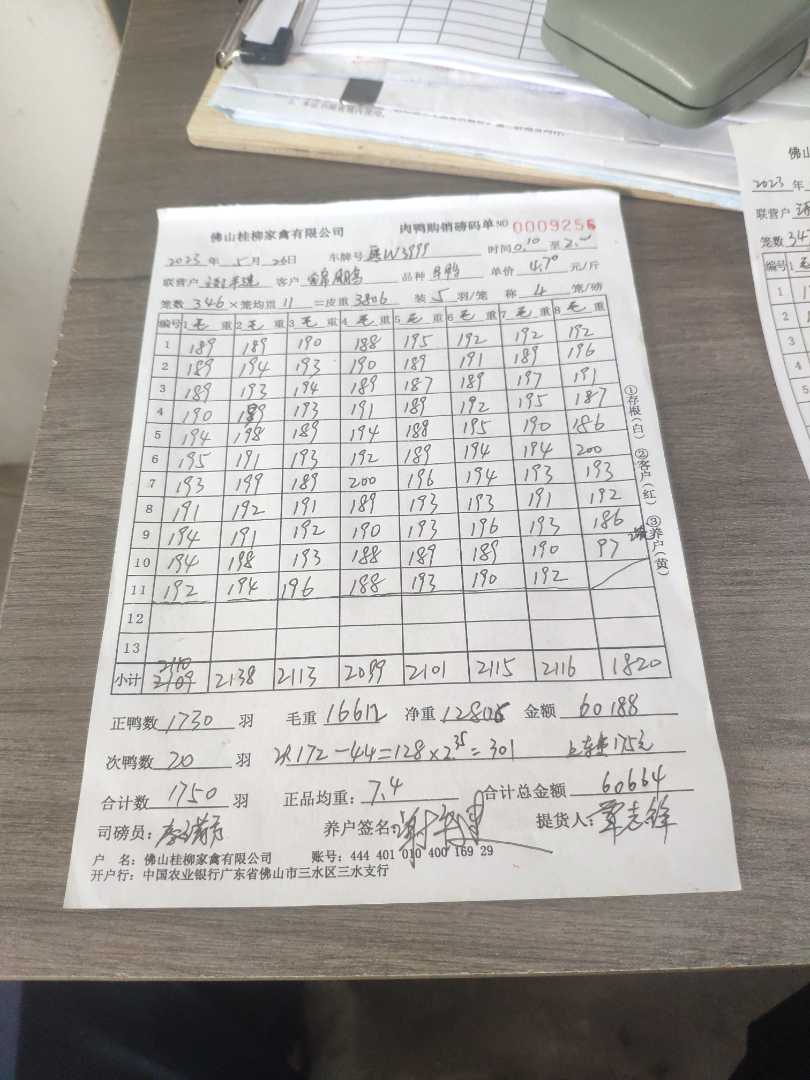 佛山桂柳家禽有限公司 肉鸭购销磅码单 NO 0009256
2023 年 5 月 日 车牌号 W3999 时间 0.10 至 2.00
联营户 客户 品种 单价 4.70 元/斤
笼数 346 ×笼均贯 11 =皮重 3806 装 5 羽/笼 称 4 笼/磅
编号 1 毛 重 2 毛 重 3 毛 重 4 毛 重 5 毛 重 6 毛 重 7 毛 重 8 毛 重
1 189 189 190 188 195 192 192 192
2 189 194 193 190 189 191 189 196
3 189 193 194 189 187 189 197 191
4 190 189 193 191 189 192 195 187
5 194 198 189 194 188 195 190 186
6 195 191 193 192 189 194 194 200
7 193 199 189 200 196 194 193 193
8 191 192 191 189 193 193 191 192
9 194 191 192 190 193 196 193 186
10 194 198 193 188 189 189 190 97
11 192 194 196 188 193 190 192
12
13
2110
小计 2109 2138 2113 2099 2101 2115 2116 1820
①存根(白) ②客户(红) ③养户(黄)
正鸭数 1730 羽 毛重 16612 净重 12806 金额 60188
次鸭数 20 羽 次172-44=128×2.35=301 175元
合计数 1750 羽 正品均重: 7.4 合计总金额 60664
司磅员: 养户签名: 提货人: 覃志锋
户 名: 佛山桂柳家禽有限公司 账号: 444 401 010 400 169 29
开户行: 中国农业银行广东省佛山市三水区三水支行
佛山
2023 年
联营户
笼数 347
编号 1
1
2
3
4
5